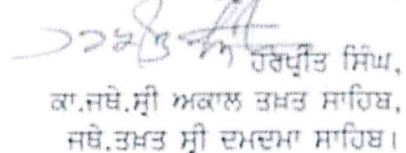 ਹਰਪ੍ਰੀਤ ਸਿੰਘ,
ਕਾ.ਜਥੇ.ਸ੍ਰੀ ਅਕਾਲ ਤਖ਼ਤ ਸਾਹਿਬ,
ਜਥੇ.ਤਖ਼ਤ ਸ੍ਰੀ ਦਮਦਮਾ ਸਾਹਿਬ।